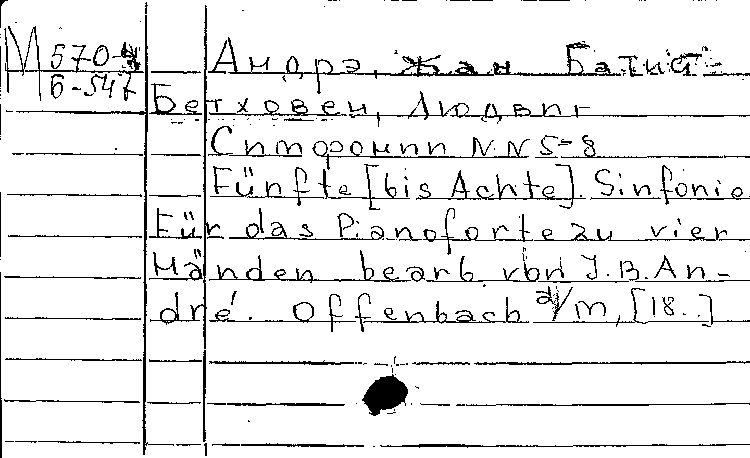 М 570-4
Б-547
Андрэ, Жан Батист-
Бетховен, Людвиг
Симфонии NN 5-8
Fünfte [bis Achte]. Sinfonie
Für das Pianoforte zu vier
Händen bearb. von J. B. An-
dré. Offenbach a/m, [18..]